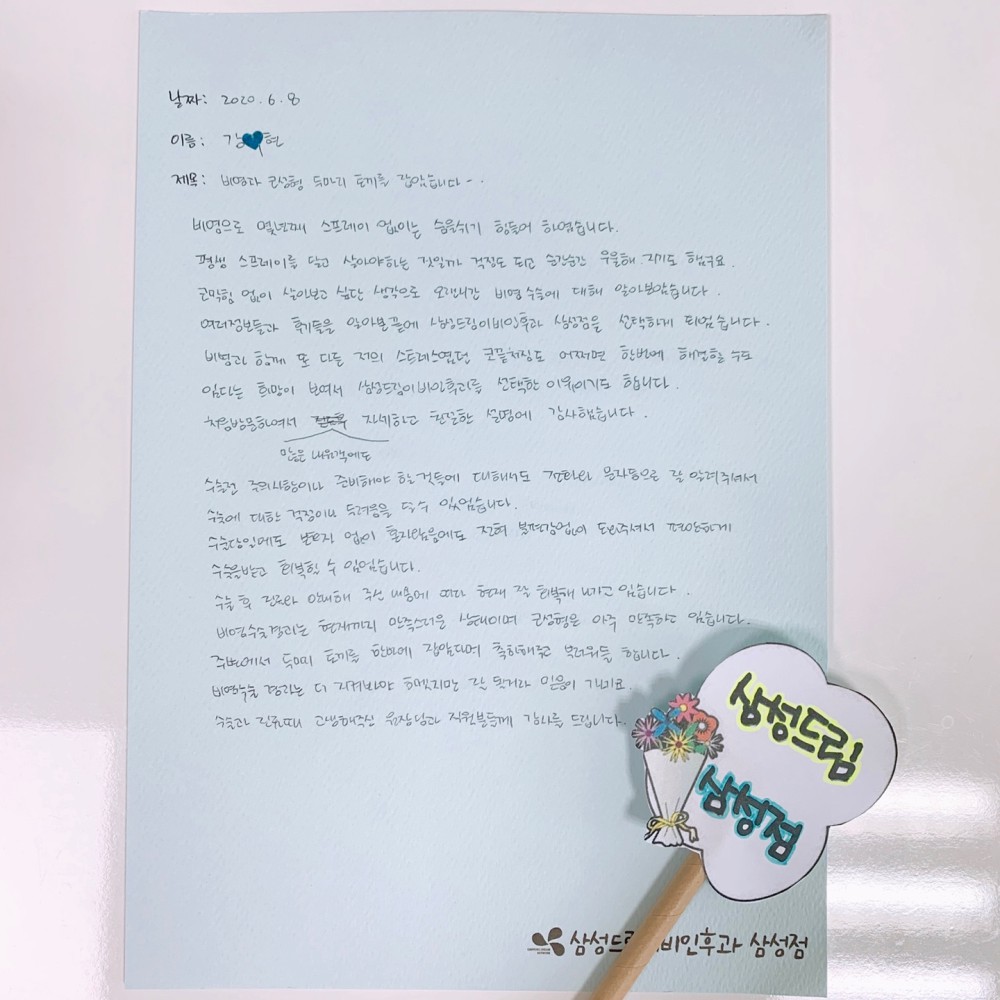 날짜: 2020.6.8
이름: 강 현
제목: 비염과 코성형 두마리 토끼를 잡았습니다~.
비염으로 몇년째 스프레이 없이는 숨을쉬기 힘들어 하였습니다.
평생 스프레이를 달고 살아야하는 것일까 걱정도 되고 순간순간 우울해 지기도 했구요.
코막힘 없이 살아보고 싶단 생각으로 오랜시간 비염 수술에 대해 알아보았습니다.
여러정보들과 후기들을 알아본 끝에 삼성드림이비인후과 삼성점을 선택하게 되었습니다.
비염과 함께 또 다른 저의 스트레스였던 코끝처짐도 어쩌면 한번에 해결할 수도
있다는 희망이 보여서 삼성드림이비인후과를 선택한 이유이기도 합니다.
처음방문하여서 자세하고 친절한 설명에 감사했습니다.
많은 내원객에도
수술전 주의사항이나 준비해야 할 것들에 대해서도 전화와 문자등으로 잘 알려주셔서
수술에 대한 걱정이나 두려움을 덜 수 있었습니다.
수술당일에도 보호자 없이 혼자였음에도 전혀 불편감없이 도와주셔서 편안하게
수술을받고 회복할 수 있었습니다.
수술 후 진료와 안내해 주신 내용에 따라 현재 잘 회복해 나가고 있습니다.
비염수술결과는 현재까지 만족스러운 상태이며 코성형은 아주 만족하고 있습니다.
주변에서 두마리 토끼를 한번에 잡았다며 축하해주고 부러워들 합니다.
비염수술 결과는 더 지켜봐야 하겠지만 잘 될거라 믿음이 가네요.
수술과 진료때 고생해주신 원장님과 직원분들께 감사를 드립니다.
삼성드림
삼성점
삼성드 비인후과 삼성점